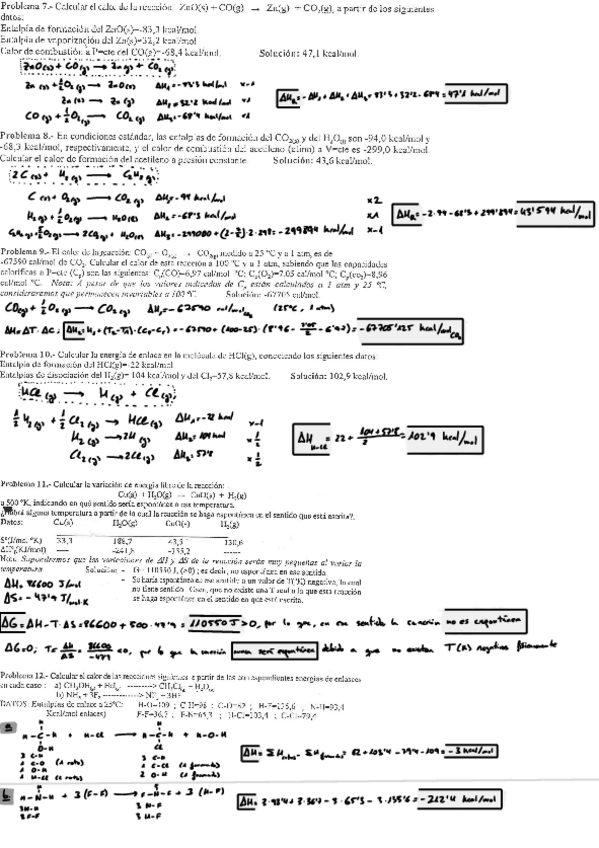 Problema 7.- Calcular el calor de la reacción: ZnO(s) + CO(g) → Zn(g) + CO₂(g), a partir de los siguientes
datos:
Entalpía de formación del ZnO(s)=-83,3 kcal/mol.
Entalpía de vaporización del Zn(s)=32,2 kcal/mol.
Calor de combustión a P=cte del CO(g)=-68,4 kcal/mol. Solución: 47,1 kcal/mol.
ZnO(s) + CO(g) → Zn(g) + CO₂(g)
Zn(s) + ½O₂(g) → ZnO(s) ΔH₁ = -83'3 kcal/mol x-1
Zn(s) → Zn(g) ΔH₂ = 32'2 kcal/mol x1
CO(g) + ½O₂(g) → CO₂(g) ΔH₃ = -68'4 kcal/mol x1
ΔH_R = -ΔH₁ + ΔH₂ + ΔH₃ = 83'3 + 32'2 - 68'4 = 47'1 kcal/mol
Problema 8.- En condiciones estándar, las entalpías de formación del CO₂(g) y del H₂O(l) son -94,0 kcal/mol y
-68,3 kcal/mol, respectivamente, y el calor de combustión del acetileno (etino) a V=cte es -299,0 kcal/mol.
Calcular el calor de formación del acetileno a presión constante. Solución: 43,6 kcal/mol.
2C(s) + H₂(g) → C₂H₂(g)
C(s) + O₂(g) → CO₂(g) ΔH₁ = -94 kcal/mol x2
H₂(g) + ½O₂(g) → H₂O(l) ΔH₂ = -68'3 kcal/mol x1
C₂H₂(g) + 5/2 O₂(g) → 2CO₂(g) + H₂O(l) x-1
ΔH_R = -2·94 - 68'3 + 299'894 = 43'594 kcal/mol
Problema 9.- El calor de la reacción: CO(g) + O₂(g) → CO₂(g) medido a 25 °C y a 1 atm, es de
-67590 cal/mol de CO₂. Calcular el calor de esta reacción a 100 °C y a 1 atm, sabiendo que las capacidades
caloríficas a P=cte (Cp) son las siguientes: Cp(CO)=6,97 cal/mol °C; Cp(O₂)=7,05 cal/mol °C; Cp(CO₂)=8,96
cal/mol °C. Nota: A pesar de que los valores indicados de Cp están calculados a 1 atm y 25 °C,
consideraremos que permanecen invariables a 100 °C. Solución: -67705 cal/mol.
CO(g) + ½O₂(g) → CO₂(g) ΔH = -67590 cal/mol (25°C, 1 atm)
Problema 10.- Calcular la energía de enlace en la molécula de HCl(g), conociendo los siguientes datos:
Entalpía de formación del HCl(g)=-22 kcal/mol
Entalpías de disociación del H₂(g)= 104 kcal/mol y del Cl₂=57,8 kcal/mol. Solución: 102,9 kcal/mol.
HCl(g) → H(g) + Cl(g)
½H₂(g) + ½Cl₂(g) → HCl(g) ΔH₁ = -22 kcal x-1
H₂(g) → 2H(g) ΔH₂ = 104 kcal x½
Cl₂(g) → 2Cl(g) ΔH₃ = 57'8 x½
ΔH H-Cl = 22 + (104+57'8)/2 = 102'9 kcal/mol
Problema 11.- Calcular la variación de energía libre de la reacción:
Cu(s) + H₂O(g) → CuO(s) + H₂(g)
a 500 °K, indicando en qué sentido sería espontánea a esa temperatura.
¿Habrá alguna temperatura a partir de la cual la reacción se haga espontánea en el sentido que está escrita?
Datos: Cu(s) H₂O(g) CuO(s) H₂(g)
S°(J/mol °K) 33,3 188,7 43,5 130,6
ΔH°f(KJ/mol) ----- -241,8 -155,2 ------
Nota. Supondremos que las variaciones de ΔH y ΔS de la reacción serán muy pequeñas al variar la
temperatura. Solución: - G= 110550 J, (>0) ; es decir, no espontánea en ese sentido.
- Se haría espontánea en ese sentido a un valor de T(°K) negativa, lo cual
no tiene sentido. Claro, que no existe una T real a la que esta reacción
se haga espontánea en el sentido en que está escrita.
ΔH = 86600 J/mol
ΔS = -47'9 J/mol·K
ΔG = ΔH - T·ΔS = 86600 + 500·47'9 = 110550 J > 0, por lo que, en ese sentido la reacción no es espontánea
por lo que la reacción nunca será espontánea debido a que no existen T(K) negativas físicamente
Problema 12.- Calcular el calor de las reacciones siguientes a partir de las correspondientes energías de enlaces
en cada caso: a) CH₃OH(g) + HCl(g) ----------> CH₃Cl(g) + H₂O(g)
b) NH₃ + 3F₂ -------------> NF₃ + 3HF
DATOS: Entalpías de enlace a 25°C: H-O=109 ; C-H=98 ; C-O=82 ; H-F=135,6 ; N-H=93,4
Kcal/mol enlaces) F-F=36,7 ; F-N=65,3 ; H-Cl=103,4 ; C-Cl=79,4
a.
ΔH = ΣH rotos - ΣH formados = 82 + 103'4 - 79'4 - 109 = -3 kcal/mol
b.
H-N-H + 3 (F-F) → F-N-F + 3 (H-F)
3 N-H
3 F-F
3 N-F
3 H-F
ΔH = 3·93'4 + 3·36'7 - 3·65'3 - 3·135'6 = -212'4 kcal/mol